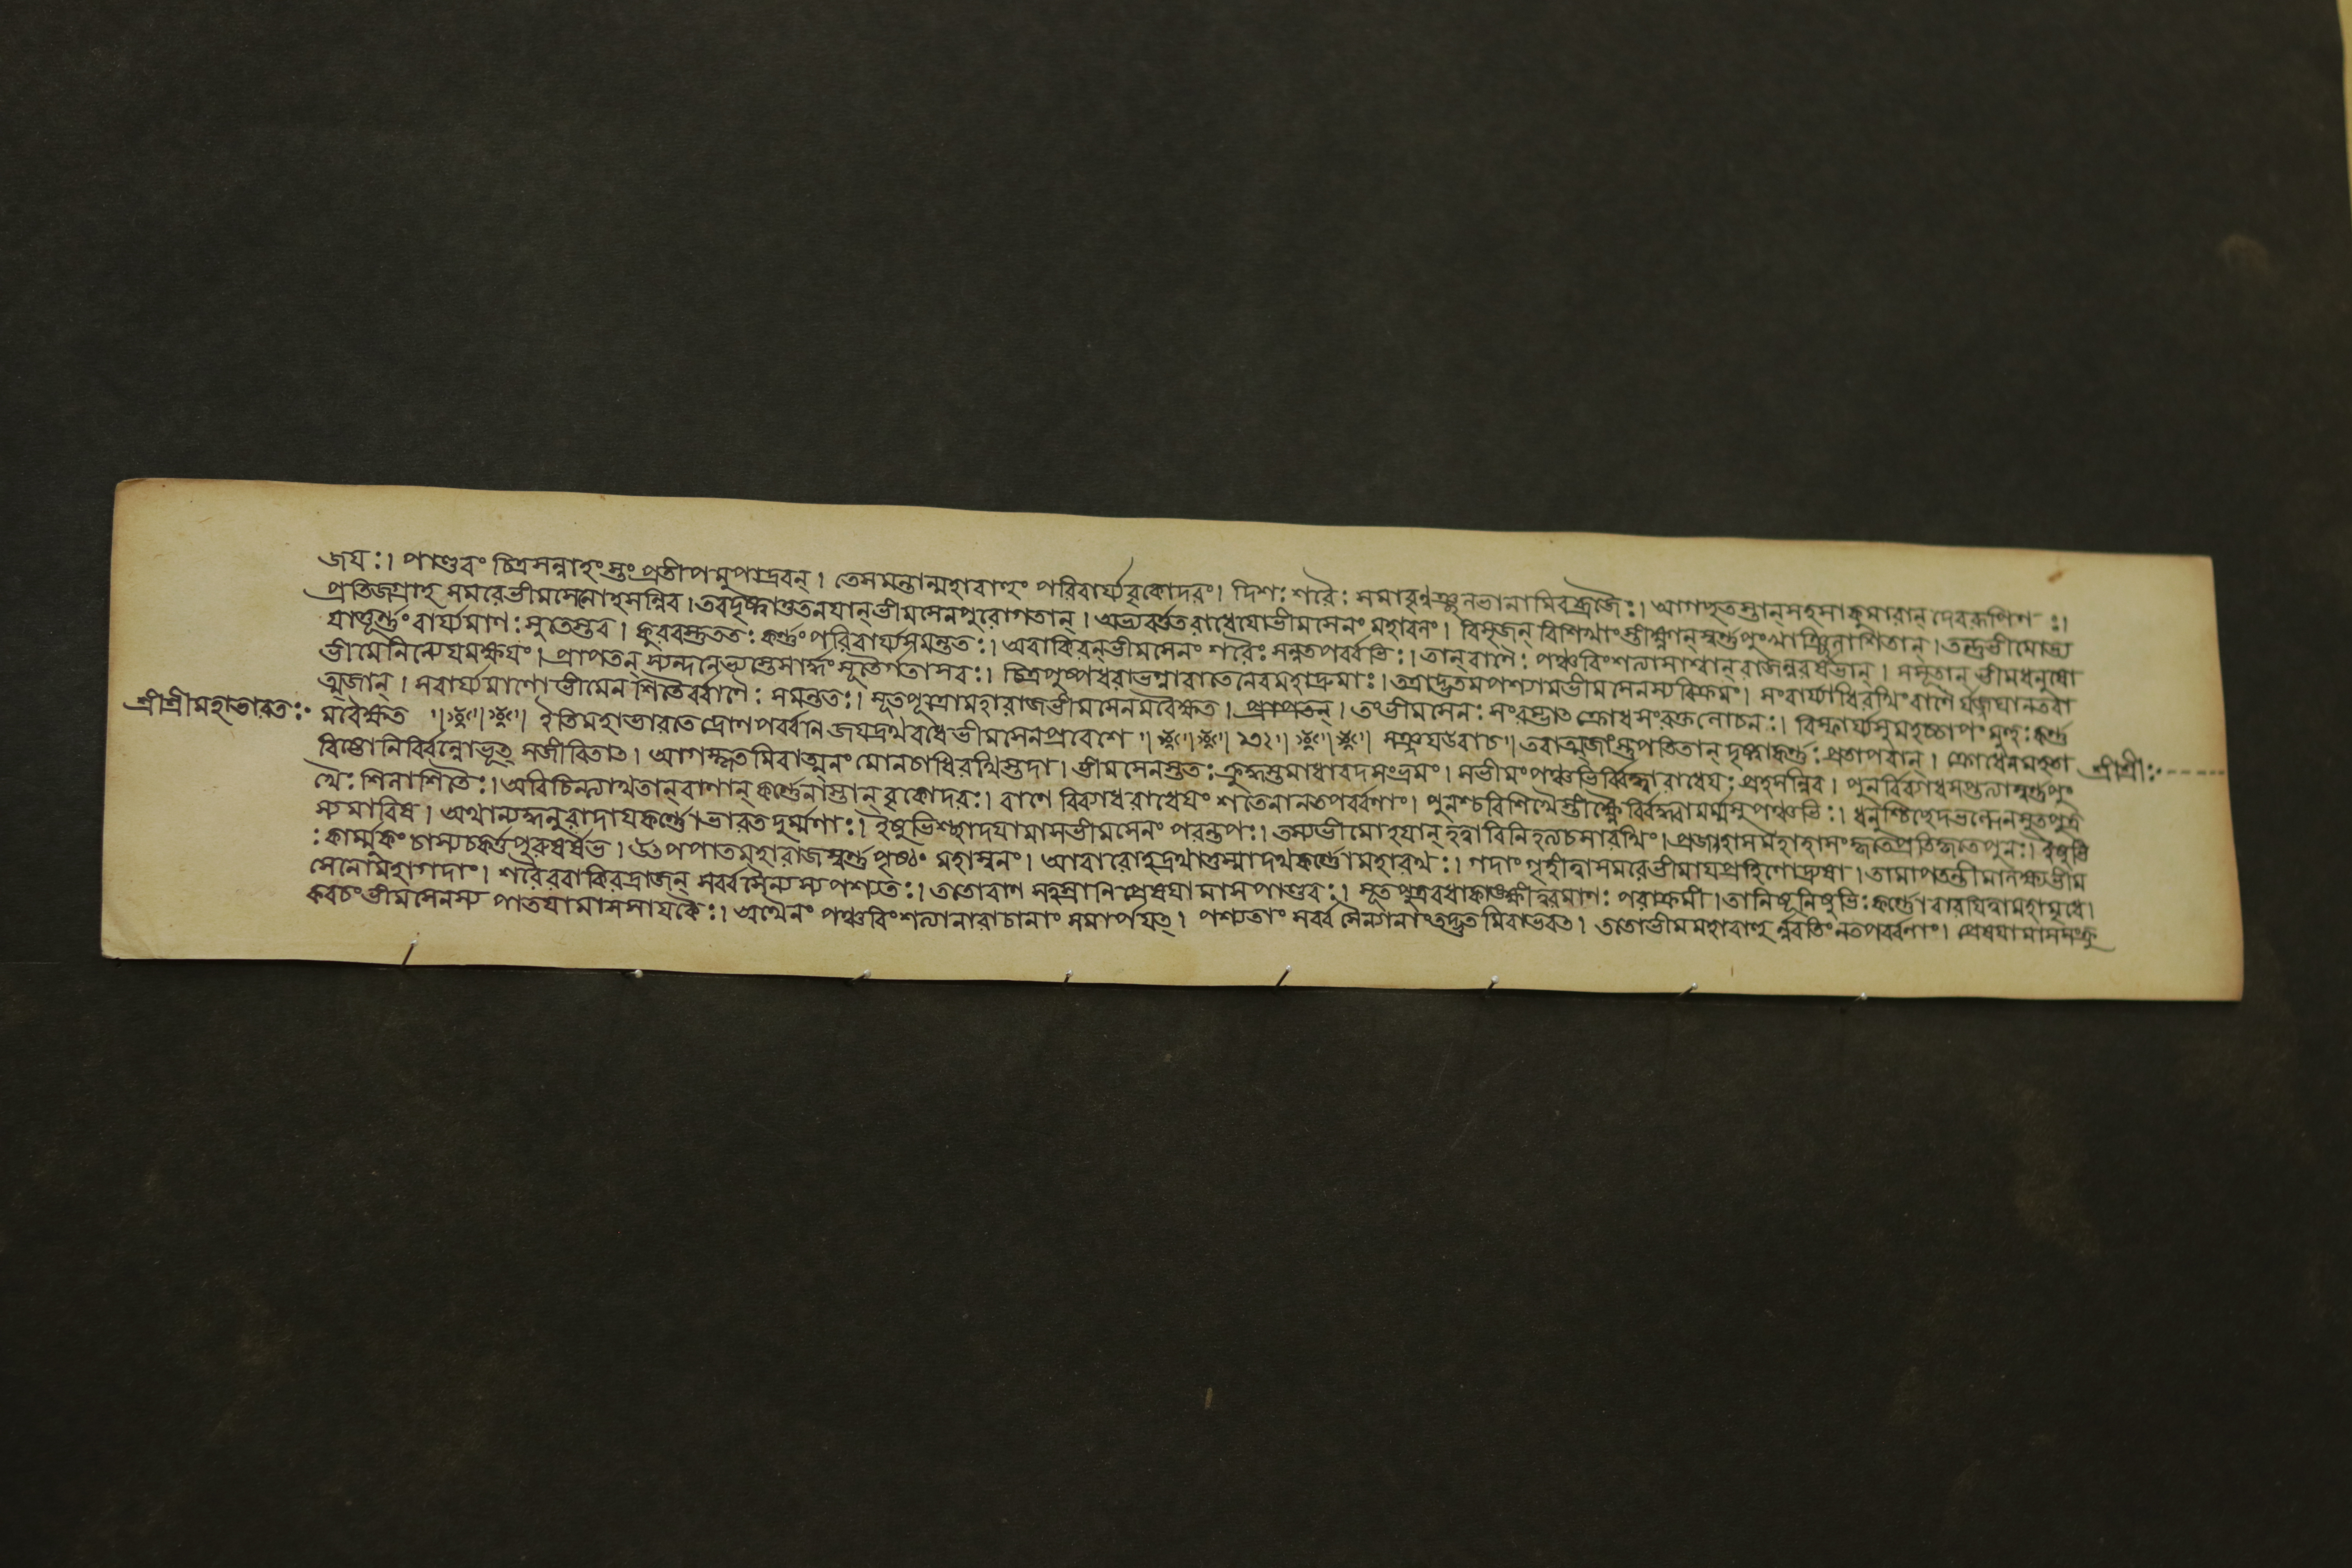 জয়ঃ। পাণ্ডবং চিত্রসন্নাহং স্তং প্রতীপমুপাদ্রবন্। তেসমন্তান্মহাবাহুং পরিবার্য্যবৃকোদরং। দিশঃ শরৈঃ সমাবৃণ্বঞ্ছলভানামিবব্রজৈঃ। আগচ্ছতস্তান্সহসাকুমারান্ দেবরূপিণঃ।
প্রতিজগ্রাহ সমরেভীমসেনোহসন্নিব। তবদৃষ্ট্বাতুতনয়ান্ভীমসেনপুরোগতান্। অভ্যবর্ত্ততরাধেয়োভীমসেনং মহাবলং। বিসৃজন্ বিশিখাংস্তীক্ষ্ণান্স্বর্ণপুংখাঞ্ছিলাশিতান্। তন্তুভীমোভ্য
যাত্তূর্ণং বার্য্যমাণঃ সুতৈস্তব। কুরবস্তুততঃ কর্ণং পরিবার্য্যসমন্ততঃ। অবাকিরন্ভীমসেনং শরৈঃ সন্নতপর্ব্বভিঃ। তান্বাণৈঃ পঞ্চবিংশত্যাসাশ্বান্রাজন্নরর্ষভান্। সসূতান্ ভীমধনুষো
ভীমোনিন্যেযমক্ষয়ং। প্রাপতন্ স্যন্দনেভ্যস্তেসার্দ্ধং সূতৈর্গতাসবঃ। চিত্রপুষ্পধরাভগ্নাবাতেনেবমহাদ্রুমাঃ। তত্রাদ্ভুতমপশ্যামভীমসেনস্যবিক্রমং। সংবার্য্যাধিরথিং বাণৈর্যজ্জঘানতবা
ত্মজান্। সবার্য্যমাণোভীমেন শিতৈর্ব্বাণৈঃ সমন্ততঃ। সূতপুত্রোমহারাজভীমসেনমবৈক্ষত। প্রাপতন্। তংভীমসেনঃ সংরম্ভাৎ ক্রোধসংরক্তলোচনঃ। বিস্ফার্য্যসুমহচ্চাপং মুহুঃ কর্ণ
শ্রীশ্রীমহাভারতঃ মবৈক্ষত ॥ ॥ ॥ ইতিমহাভারতে দ্রোণপর্ব্বনি জয়দ্রথবধেভীমসেনপ্রবেশে ॥ ॥ ॥ ॥ ॥ সঞ্জয়উবাচ॥ তবাত্মজাংস্তুপতিতান্ দৃষ্ট্বাকর্ণঃ প্রতাপবান্। ক্রোধেনমহতা শ্রীশ্রীঃ
বিষ্টোনির্ব্বিণ্নোভূত্ সজীবিতাৎ। আগস্কৃতমিবাত্মনং মেনেচাধিরথিস্তদা। ভীমসেনস্ততঃ ক্রুদ্ধস্তমাধাবদসংভ্রমং। সভীমংপঞ্চভির্ব্বিদ্ধ্বারাধেয়ঃ প্রহসন্নিব। পুনর্ব্বিব্যাধসপ্তত্যাস্বর্ণপুং
খৈঃ শিলাশিতৈঃ। অবিচিন্ত্যাথতান্বাণান্ কর্ণেনাস্তান্ বৃকোদরঃ। বাণে বিব্যাধরাধেয়ং শতেনানতপর্ব্বণাং। পুনশ্চবিশিখৈস্তীক্ষ্ণৈর্ব্বিদ্ধ্বামর্ম্মসুপঞ্চভিঃ। ধনুশ্চিচ্ছেদভল্লেনসূতপুত্র
স্যমারিষ। অথান্যদ্ধনুরাদায়কর্ণোভারতদুর্ম্মণাঃ। ইষুভিশ্ছাদয়ামাসভীমসেনং পরন্তপঃ। তস্যভীমোহয়ান্ হত্বাবিনিহত্যচসারথিং। প্রজহাসমহাহাসংকৃতেপ্রতিকৃতেপুনঃ। ইষুভি
ঃ কার্ম্মুকং চাস্যচকর্ত্তপুরুষর্ষভ। তৎপপাতমহারাজস্বর্ণপৃষ্ঠং মহাস্বনং। আবারোহদ্রথাত্তস্মাদথকর্ণোমহারথঃ। গদাং গৃহীত্বাসমরেভীমায়প্রাহিণোদ্রুষা। তামাপতন্তীমালক্ষ্যভীম
সেনোমহাগদাং। শরৈরবাকিরদ্রাজন্ সর্ব্বসৈন্যস্য পশ্যতঃ। ততোবাণ সহস্রানিপ্রেষয়ামাসপাণ্ডবঃ। সূতপুত্রবধাকাঙ্ক্ষীত্বরমাণঃ পরাক্রমী। তানিষূনিষুভিঃ কর্ণোবারয়িত্বামহামৃধে।
কবচংভীমসেনস্য পাতয়ামাসসায়কৈঃ। অথৈনং পঞ্চবিংশত্যানারাচানাং সমার্পয়ত্। পশ্যতাং সর্ব্বসৈন্যানাং তদদ্ভুতমিবাভবত। ততোভীমমহাবাহুর্ন্নবতিং নতপর্ব্বণাং। প্রেষয়ামাসসংক্রু